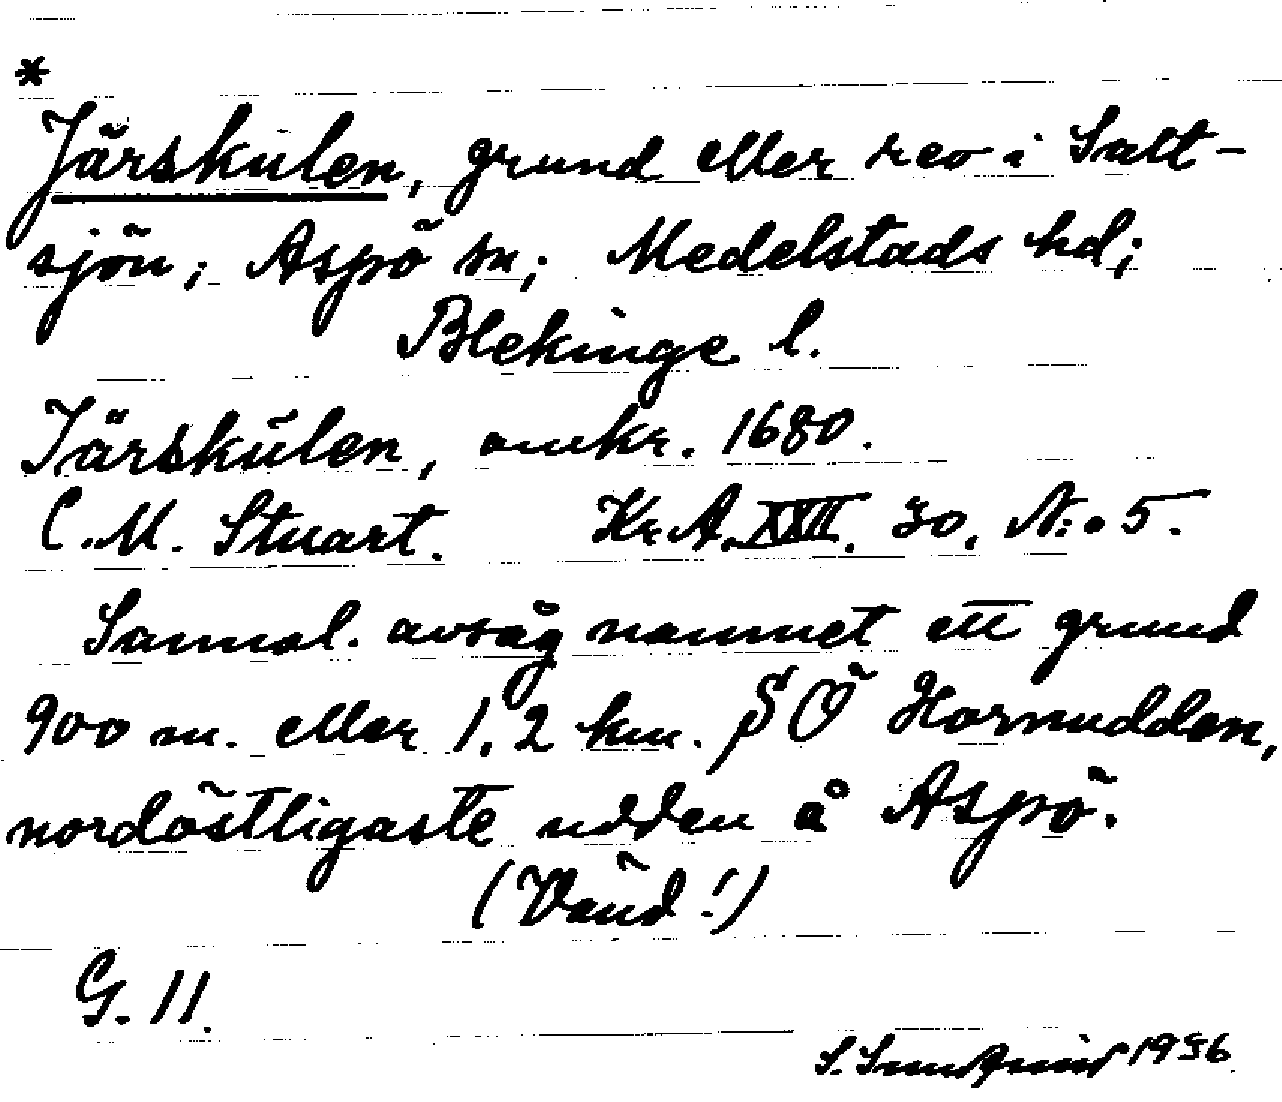 *
Järskulen, grund eller rev i Salt-
sjön; Aspö sn; Medelstads hd;
Blekinge l.
Järskulen, omkr. 1680.
C. M. Stuart. Kr. A. XVII. 30. N:o 5.
Sannol. avsåg namnet ett grund
900 m. eller 1,2 km. SÖ Hornudden,
nordöstligaste udden å Aspö.
(Vänd!)
G. 11.
S. 1956